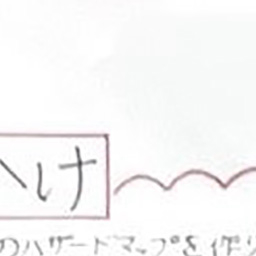 け
のハザードマップを作り